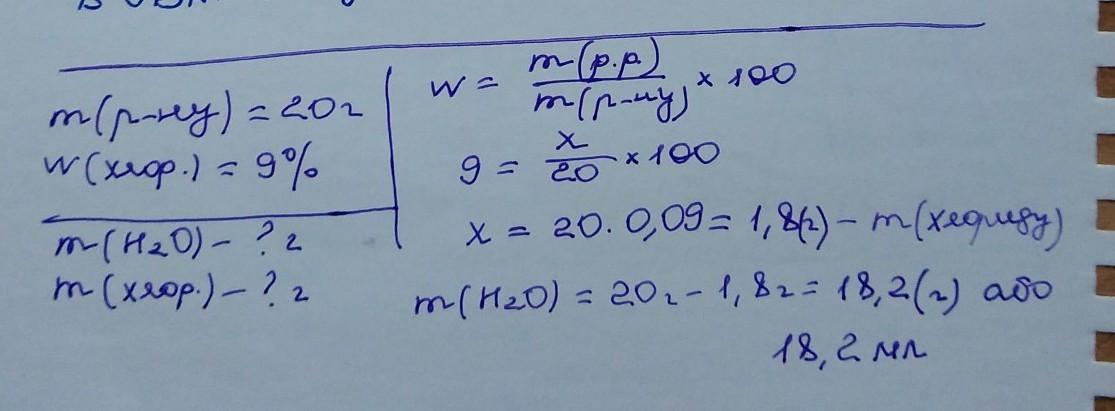 m(р-ну) = 20г
w(хлор.) = 9%
m(H₂O) - ? г
m(хлор.) - ? г
w = m(р.р) / m(р-ну) × 100
9 = x / 20 × 100
x = 20 . 0,09 = 1,8(г) - m(хлориду)
m(H₂O) = 20г - 1,8г = 18,2(г) або
18,2 мл